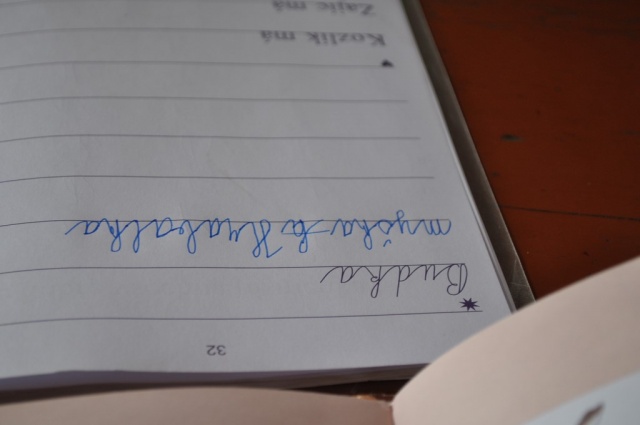 32
Budka
myška
Kozlík má
Zajíc má